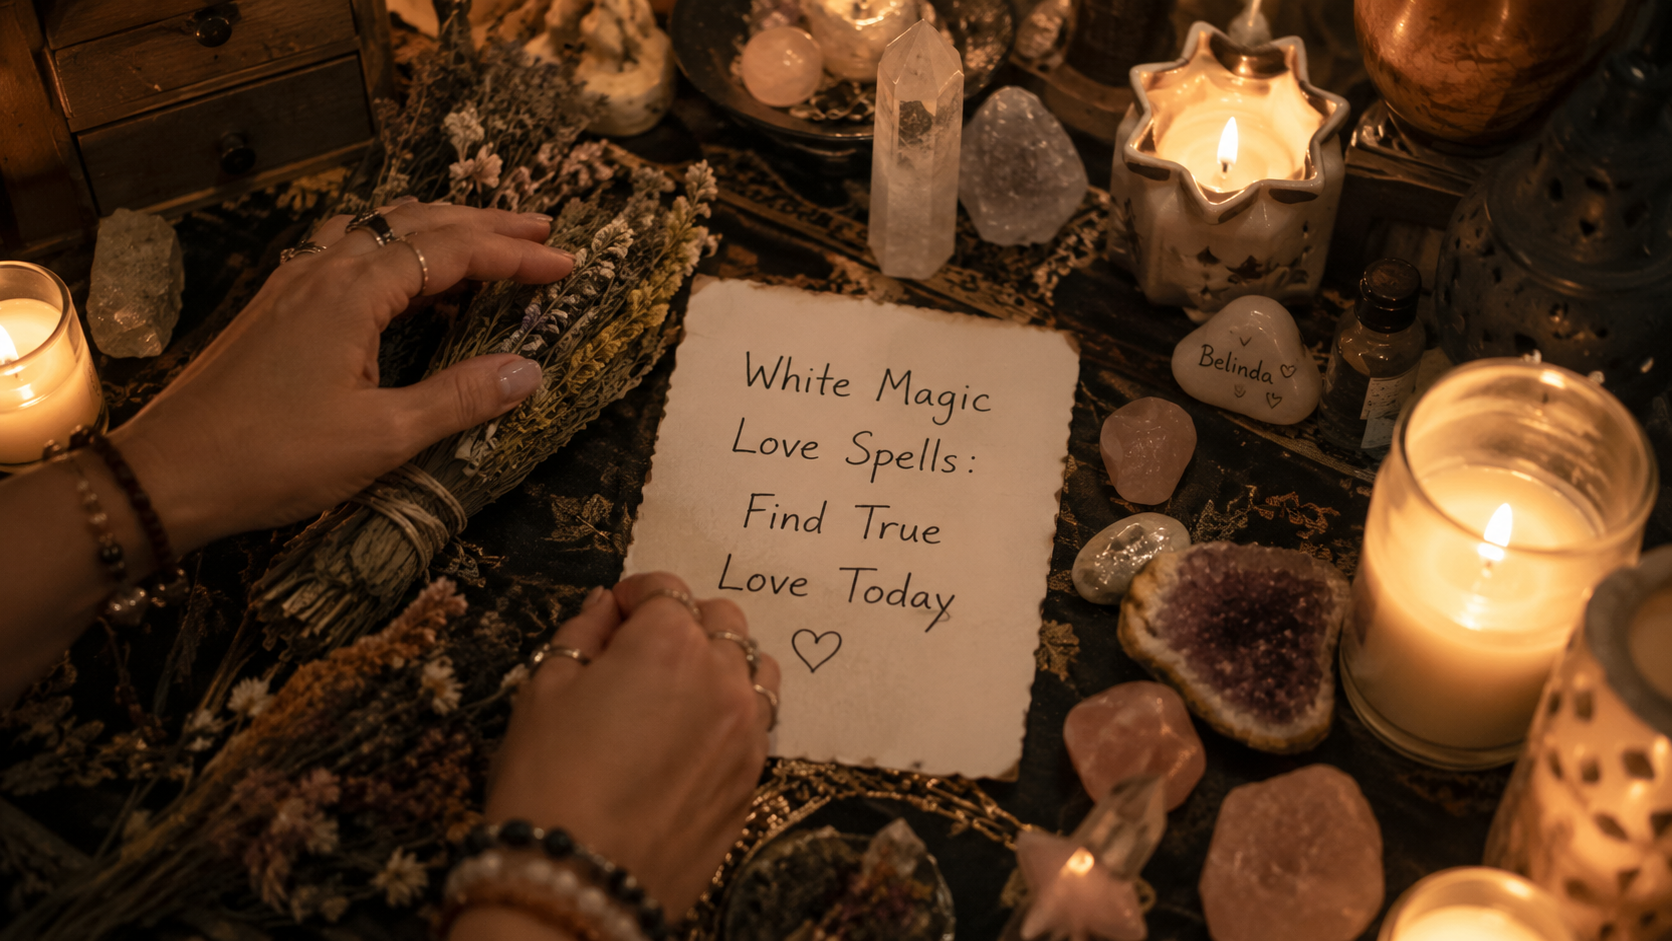 White Magic
Love Spells:
Find True
Love Today
♡
Belinda ♡